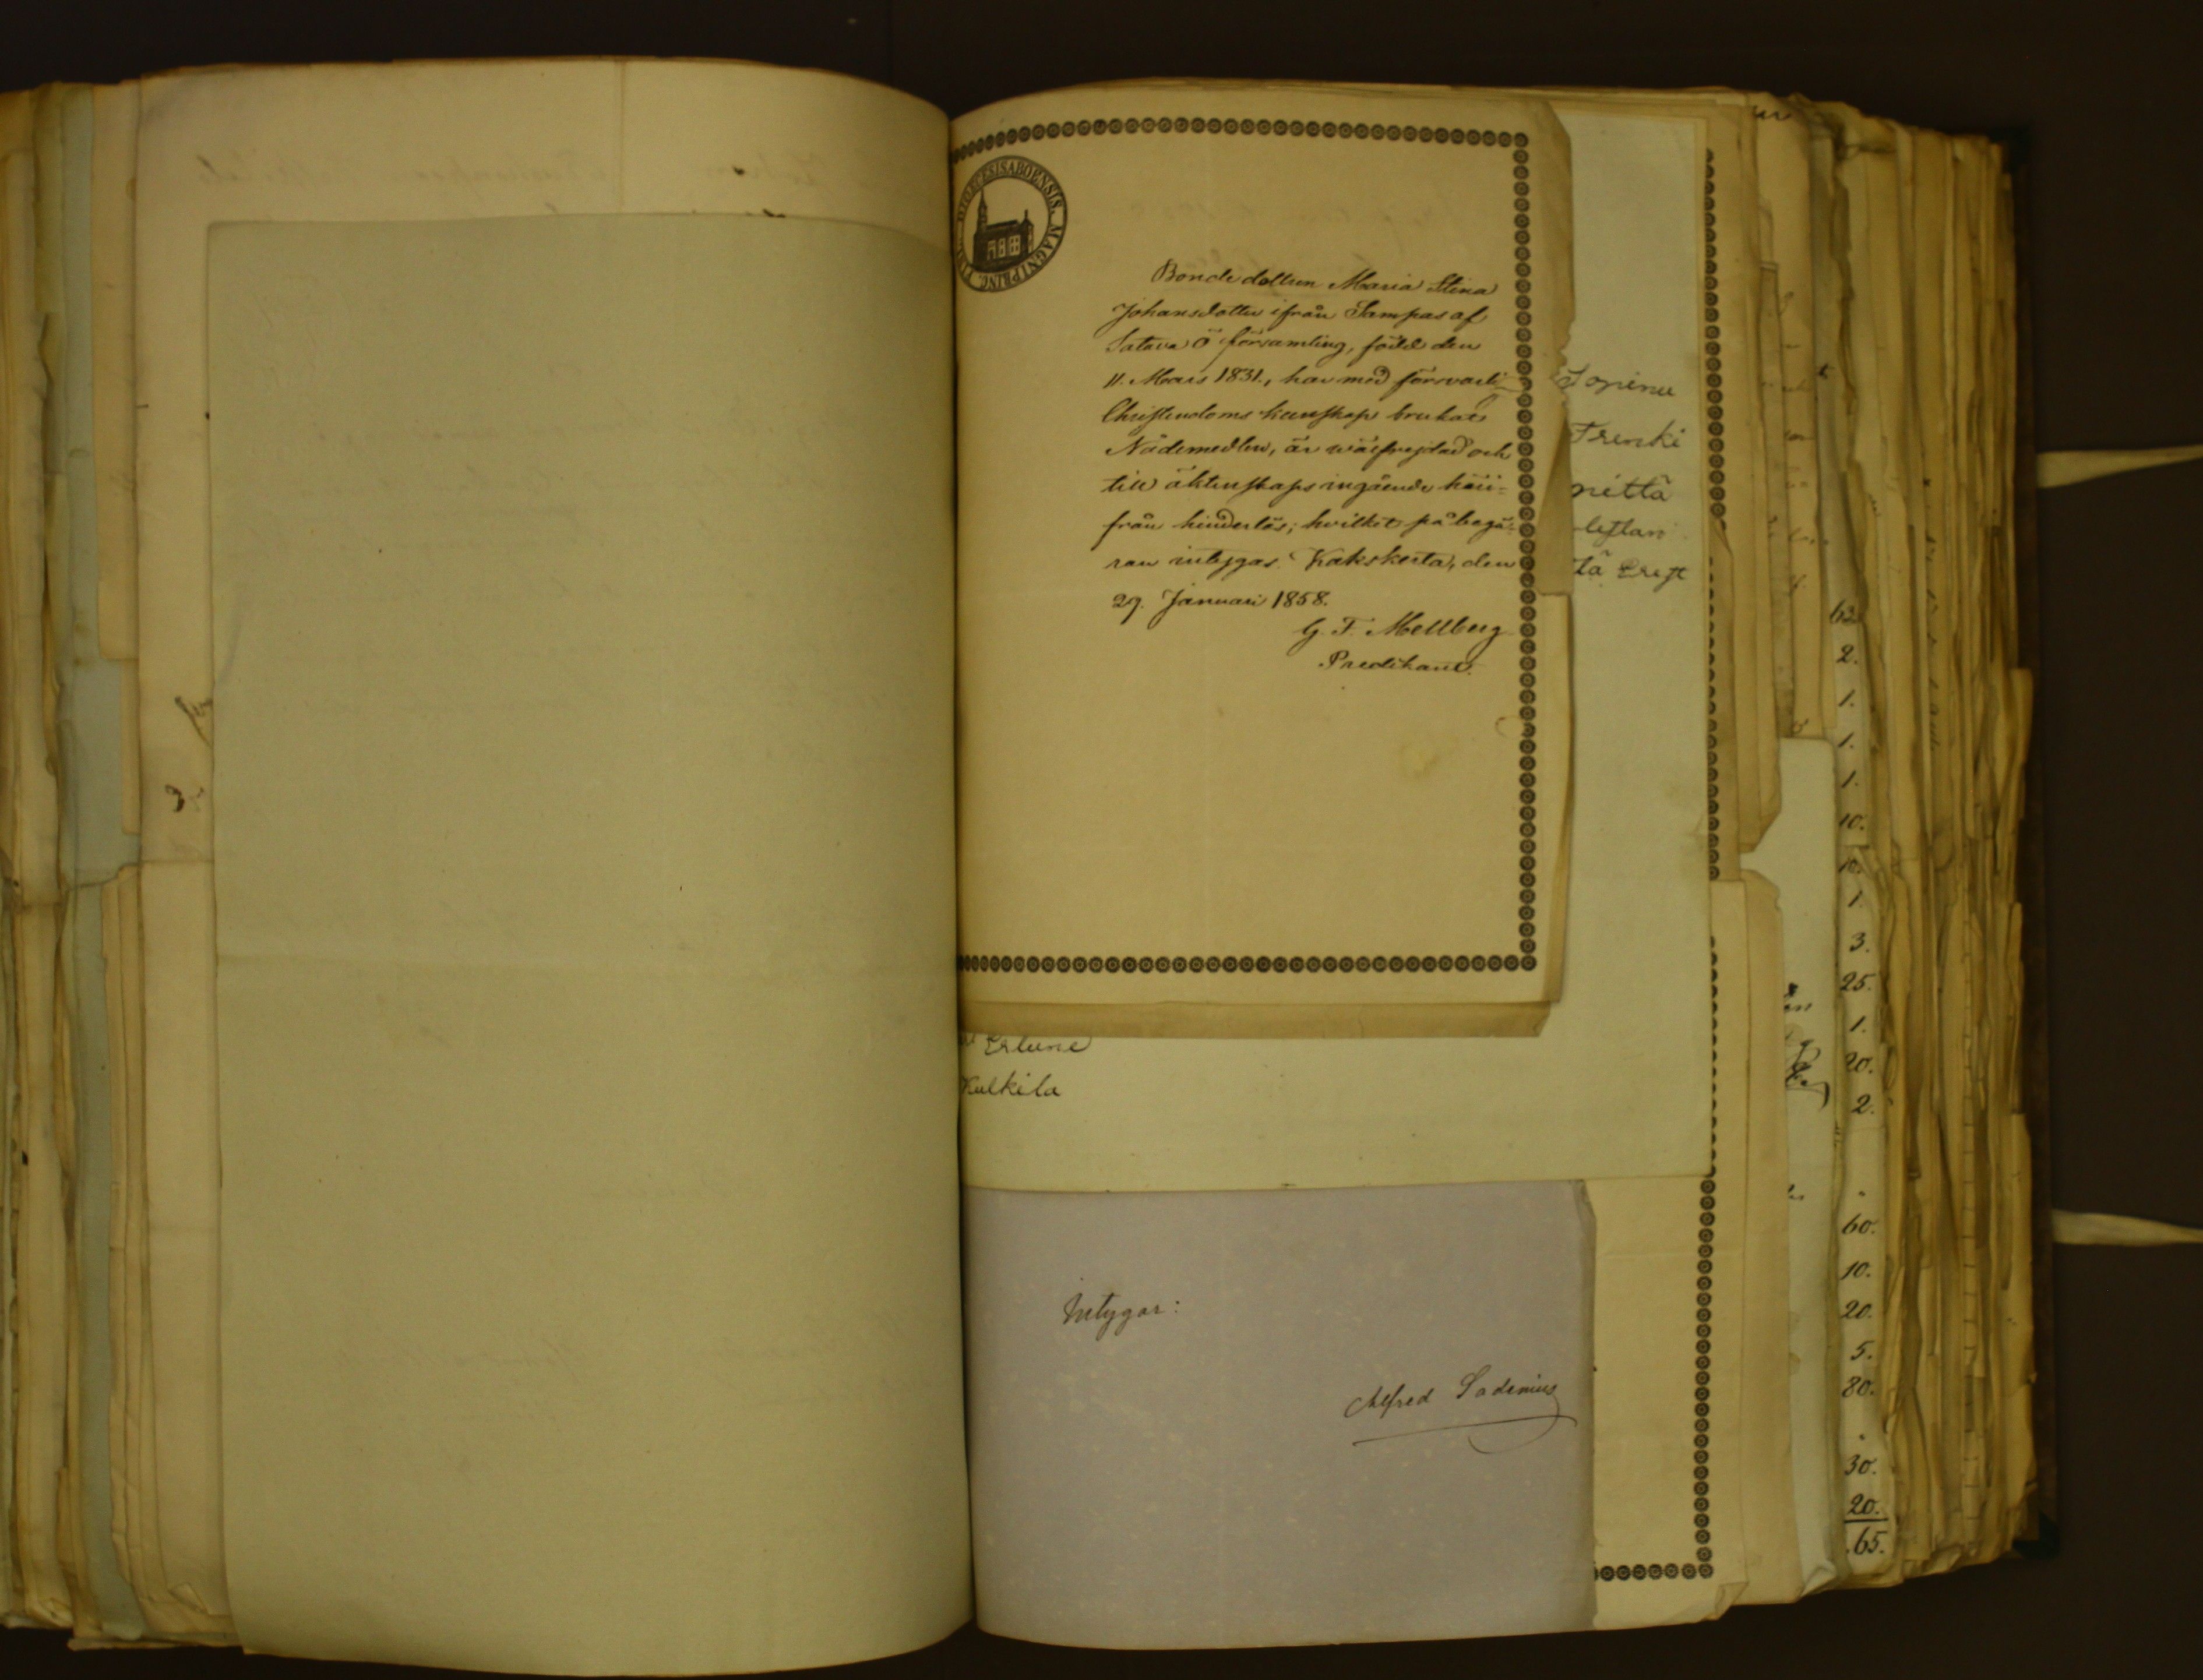 DIOECESIS ABOENSIS. MAGNI PRINC.
Bondedottren Maria Stina
Johansdotter ifrån Sampas af
Satava ö församling, född den
11. Mars 1831., har med försvarlig
Christendoms kunskap brukat
Nådemedlen, är wälfrejdad och
till äktenskaps ingående häri=
från hinderlös; hvilket på begä=
ran intygas. Kakskerta, den
29. Januari 1858.
G. F. Mellberg
Predikant.
Frenki
nittä
tä
Kulkila
Intygar:
Alfred Sadenius
2.
1.
1.
1.
10.
10.
1.
3.
25.
1.
20.
2.
60.
10.
20.
5.
80.
30.
20.
65.